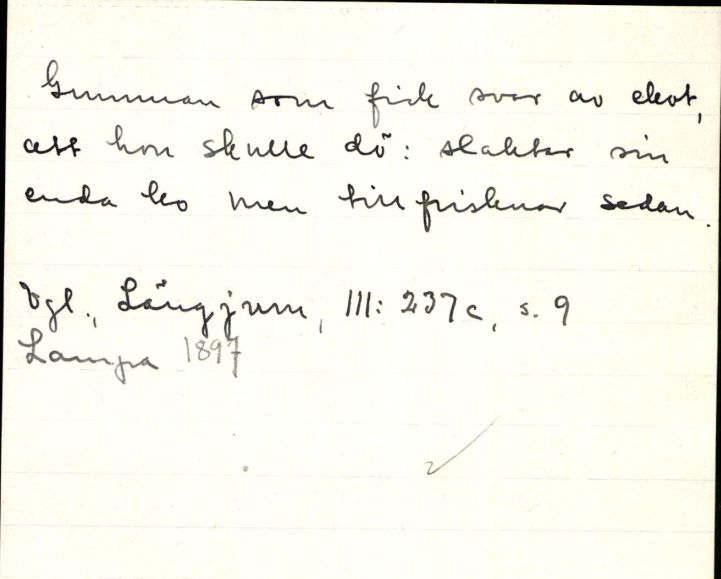 Gumman som fick svar av ekot,
att hon skulle dö: slaktar sin
enda ko men tillfrisknar sedan.
Vgl., Långjum, III: 237c, s. 9
Lampa 1897